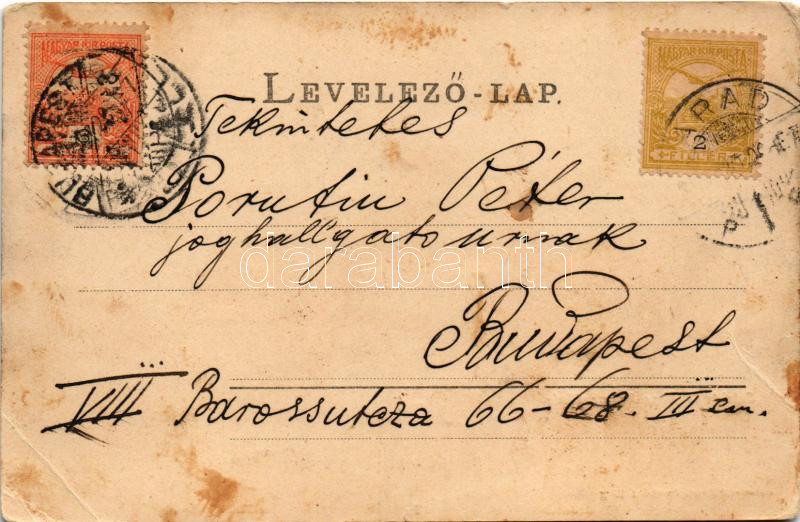 MAGYAR KIR. POSTA
MAGYAR KIR. POSTA
LEVELEZŐ-LAP.
BUDAPEST
ARAD
2
FILLÉR
Tekintetes
Porutiu Péter
joghallgató úrnak
darabanth
Budapest
VIII Barossutcza 66-68. III em.